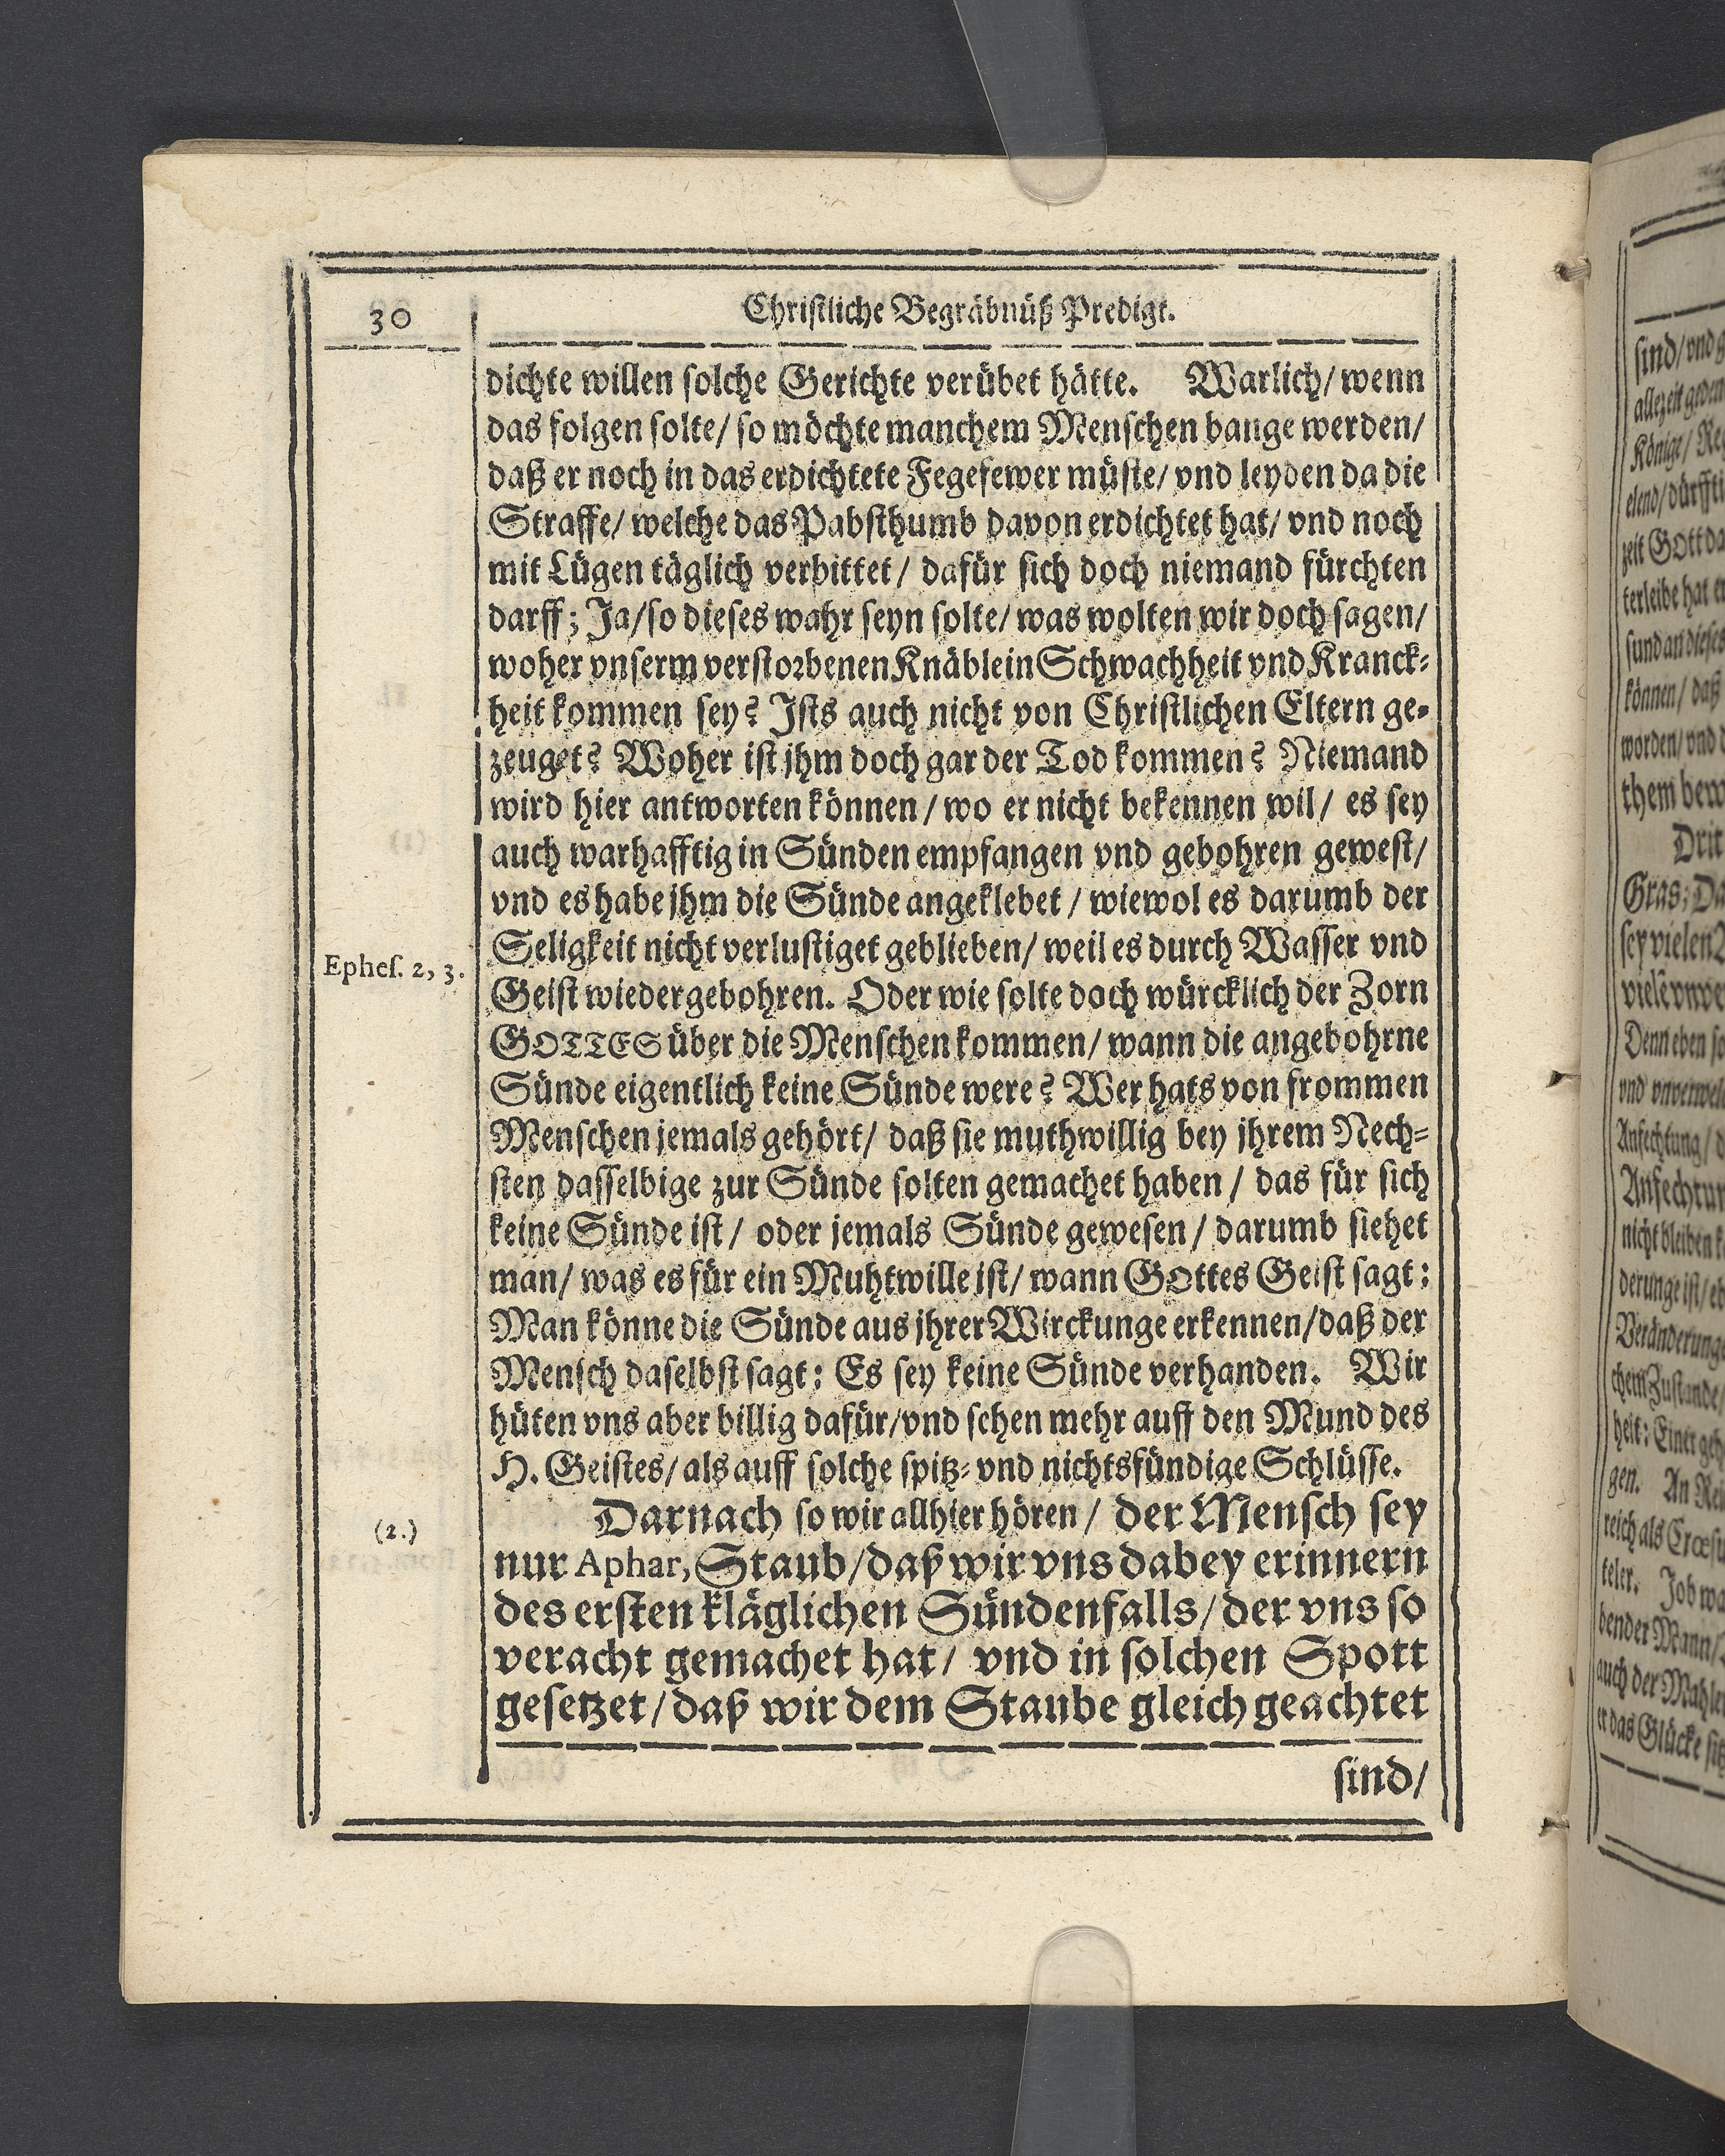 30
Christliche Begräbnüß Predigt.
dichte willen solche Gerichte verübet hätte. Warlich/ wenn
das folgen solte/ so möchte manchem Menschen bange werden/
daß er noch in das erdichtete Fegefewer müste/ vnd leyden da die
Straffe/ welche das Pabsthumb davon erdichtet hat/ vnd noch
mit Lügen täglich verbittet/ dafür sich doch niemand fürchten
darff; Ja/ so dieses wahr seyn solte/ was wolten wir doch sagen/
woher vnserm verstorbenen Knäblein Schwachheit vnd Kranck-
heit kommen sey? Ists auch nicht von Christlichen Eltern ge-
zeuget? Woher ist jhm doch gar der Tod kommen? Niemand
wird hier antworten können/ wo er nicht bekennen wil/ es sey
auch warhafftig in Sünden empfangen vnd gebohren gewest/
vnd es habe jhm die Sünde angeklebet/ wiewol es darumb der
Seligkeit nicht verlustiget geblieben/ weil es durch Wasser vnd
Ephes. 2, 3.
Geist wiedergebohren. Oder wie solte doch würcklich der Zorn
GOTTES über die Menschen kommen/ wann die angebohrne
Sünde eigentlich keine Sünde were? Wer hats von frommen
Menschen jemals gehört/ daß sie muthwillig bey jhrem Nech-
sten dasselbige zur Sünde solten gemachet haben/ das für sich
keine Sünde ist/ oder jemals Sünde gewesen/ darumb siehet
man/ was es für ein Muhtwille ist/ wann GOttes Geist sagt:
Man könne die Sünde aus jhrer Wirckunge erkennen/ daß der
Mensch daselbst sagt: Es sey keine Sünde verhanden. Wir
hüten vns aber billig dafür/ vnd sehen mehr auff den Mund des
H. Geistes/ als auff solche spitz- vnd nichtsfündige Schlüsse.
(2.)
Darnach so wir allhier hören/ der Mensch sey
nur Aphar, Staub/ daß wir vns dabey erinnern
des ersten kläglichen Sündenfalls/ der vns so
veracht gemachet hat/ vnd in solchen Spott
gesetzet/ daß wir dem Staube gleich geachtet
sind/
sind/ vnd
Könige/
zeit GOtt
terleibe hat
können/ daß
worden/ vnd
them
Gras;
sey vielen
Denn eben
vnd
Anfechtung/
nicht bleiben
derunge ist/
heit: Einer
gen. An
reich als
teler. Job
bender Mann/
auch der
er das Glücke